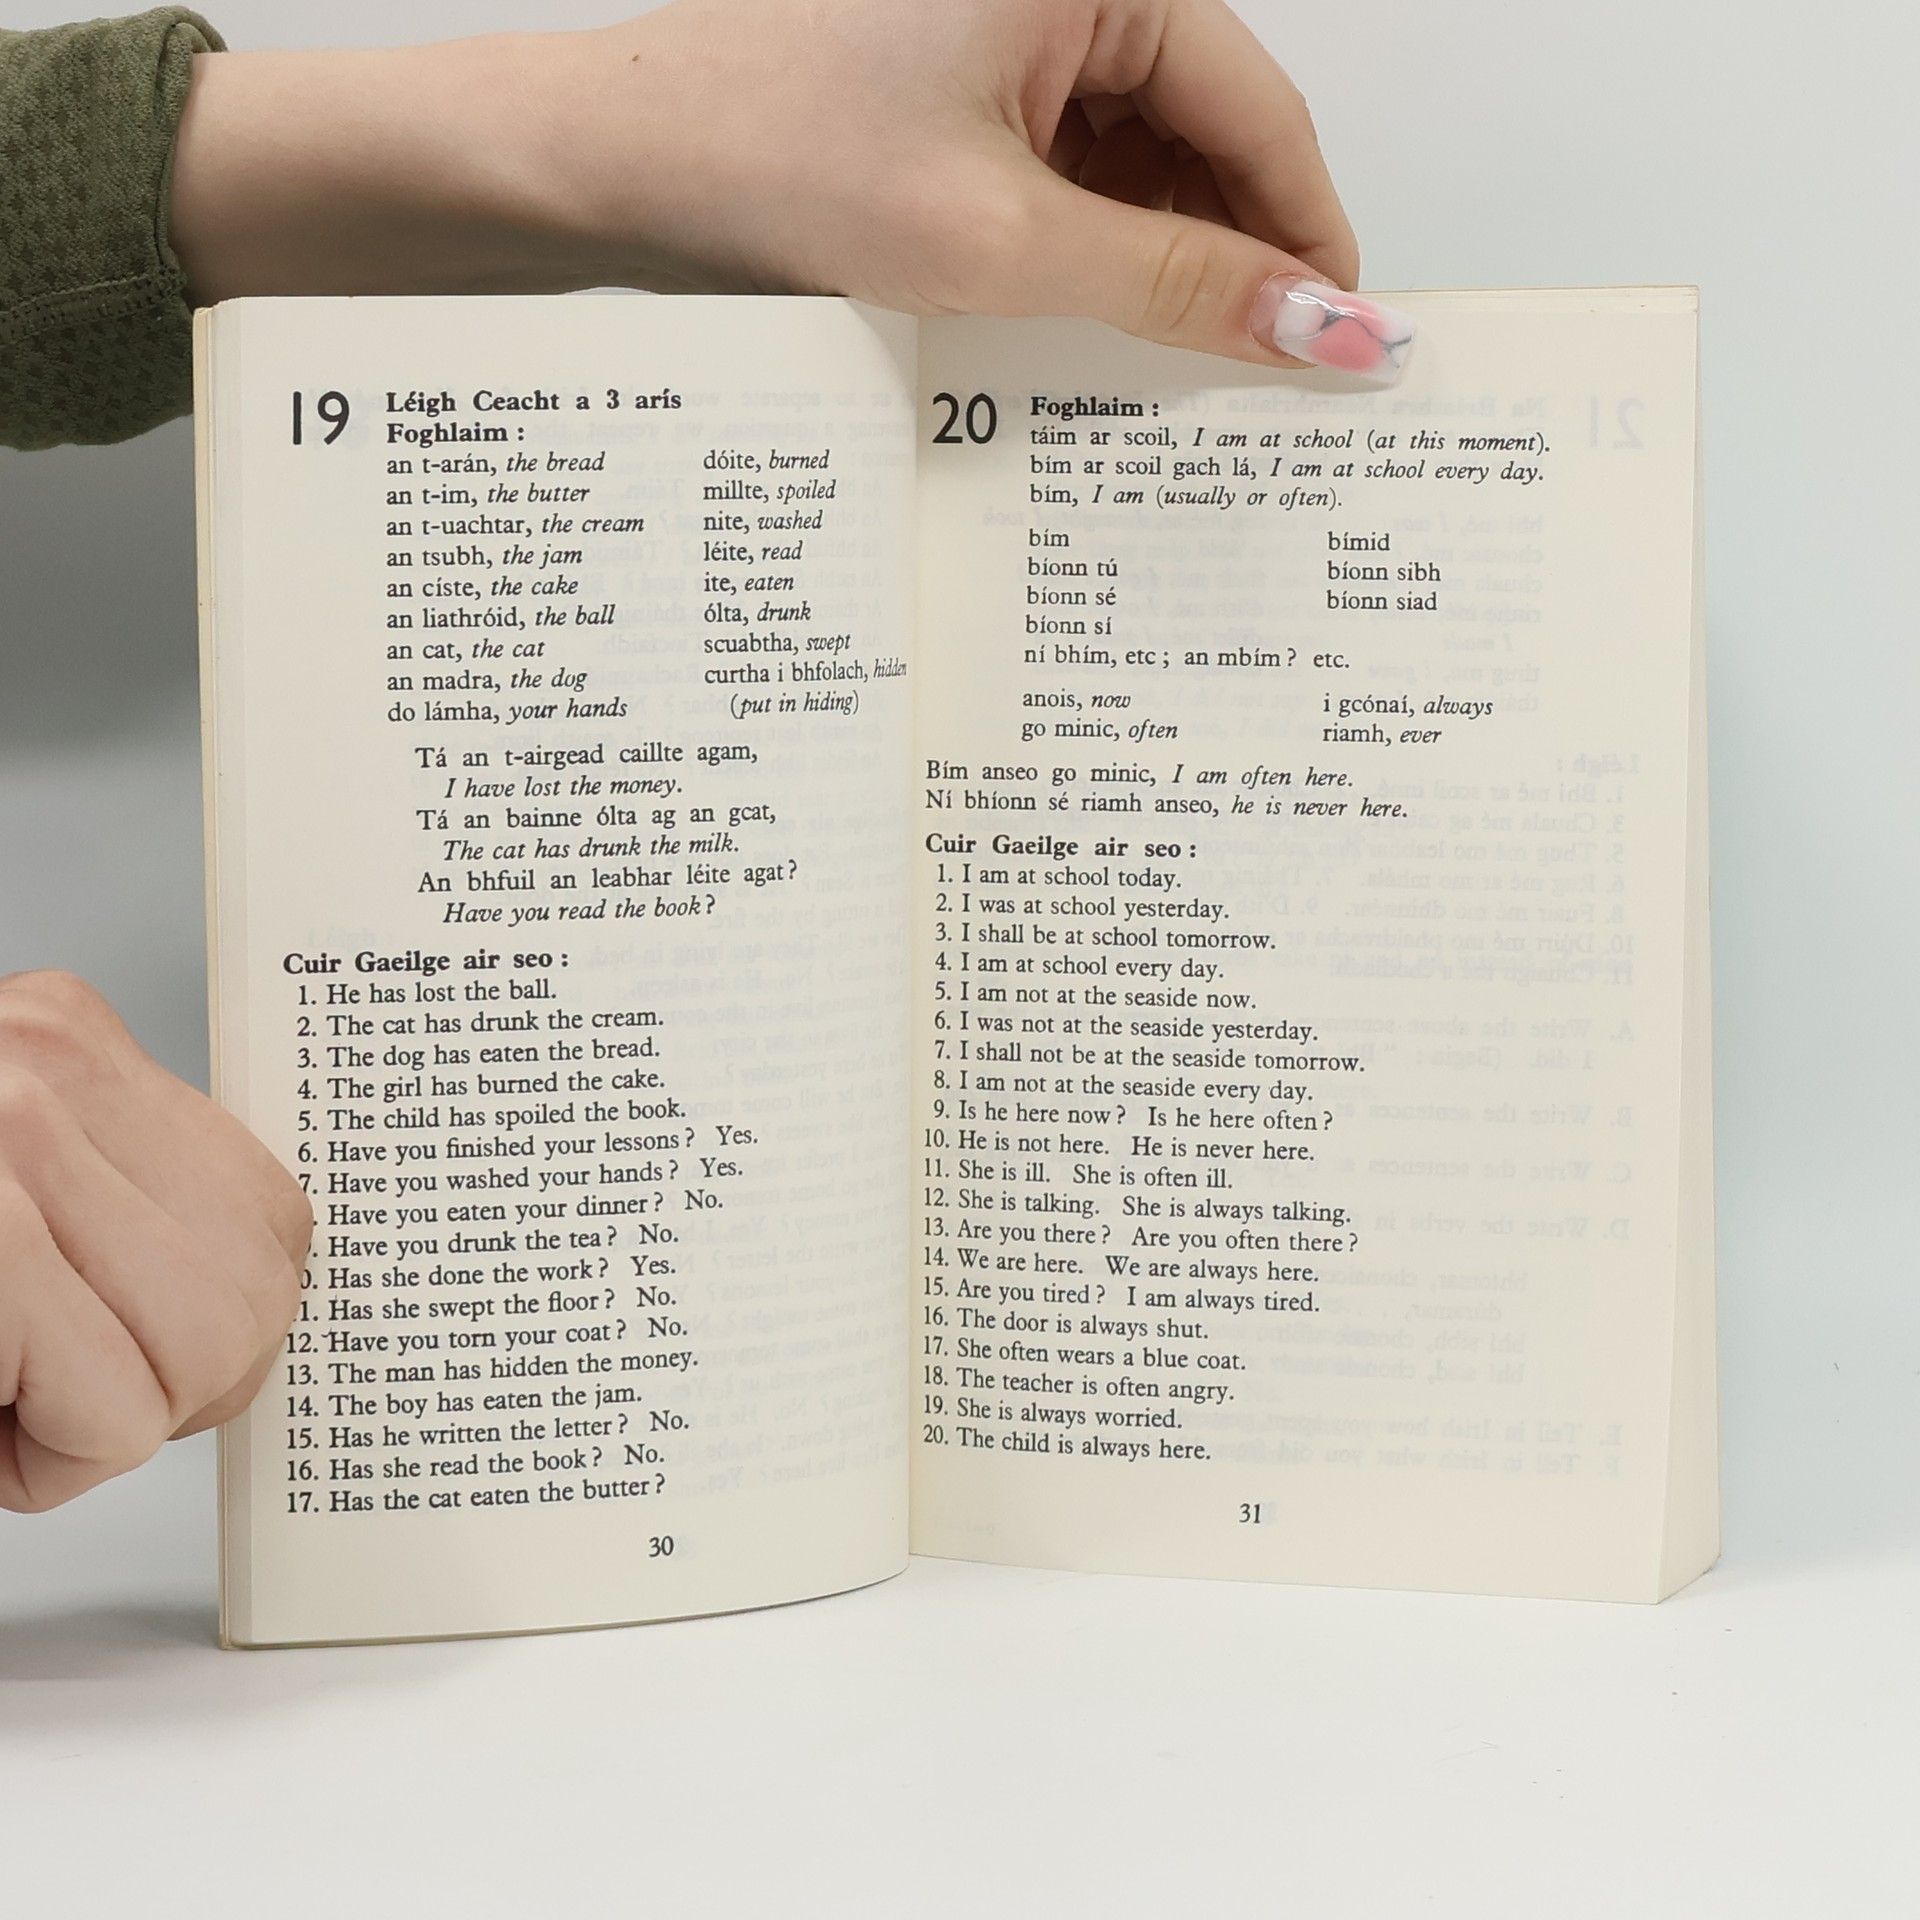 19
Léigh Ceacht a 3 arís
Foghlaim :
an t-arán, the bread
an t-im, the butter
an t-uachtar, the cream
an tsubh, the jam
an císte, the cake
an liathróid, the ball
an cat, the cat
an madra, the dog
do lámha, your hands
dóite, burned
millte, spoiled
nite, washed
léite, read
ite, eaten
ólta, drunk
scuabtha, swept
curtha i bhfolach, hidden
(put in hiding)
Tá an t-airgead caillte agam,
I have lost the money.
Tá an bainne ólta ag an gcat,
The cat has drunk the milk.
An bhfuil an leabhar léite agat?
Have you read the book?
Cuir Gaeilge air seo :
1. He has lost the ball.
2. The cat has drunk the cream.
3. The dog has eaten the bread.
4. The girl has burned the cake.
5. The child has spoiled the book.
6. Have you finished your lessons? Yes.
7. Have you washed your hands? Yes.
. Have you eaten your dinner? No.
. Have you drunk the tea? No.
0. Has she done the work? Yes.
1. Has she swept the floor? No.
12. Have you torn your coat? No.
13. The man has hidden the money.
14. The boy has eaten the jam.
15. Has he written the letter? No.
16. Has she read the book? No.
17. Has the cat eaten the butter?
30
20
Foghlaim :
táim ar scoil, I am at school (at this moment).
bím ar scoil gach lá, I am at school every day.
bím, I am (usually or often).
bím
bíonn tú
bíonn sé
bíonn sí
bímid
bíonn sibh
bíonn siad
ní bhím, etc ; an mbím? etc.
anois, now
go minic, often
i gcónaí, always
riamh, ever
Bím anseo go minic, I am often here.
Ní bhíonn sé riamh anseo, he is never here.
Cuir Gaeilge air seo :
1. I am at school today.
2. I was at school yesterday.
3. I shall be at school tomorrow.
4. I am at school every day.
5. I am not at the seaside now.
6. I was not at the seaside yesterday.
7. I shall not be at the seaside tomorrow.
8. I am not at the seaside every day.
9. Is he here now? Is he here often?
10. He is not here. He is never here.
11. She is ill. She is often ill.
12. She is talking. She is always talking.
13. Are you there? Are you often there?
14. We are here. We are always here.
15. Are you tired? I am always tired.
16. The door is always shut.
17. She often wears a blue coat.
18. The teacher is often angry.
19. She is always worried.
20. The child is always here.
31